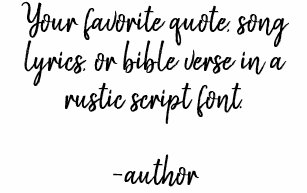 Your favorite quote, song
lyrics, or bible verse in a
rustic script font.
-author